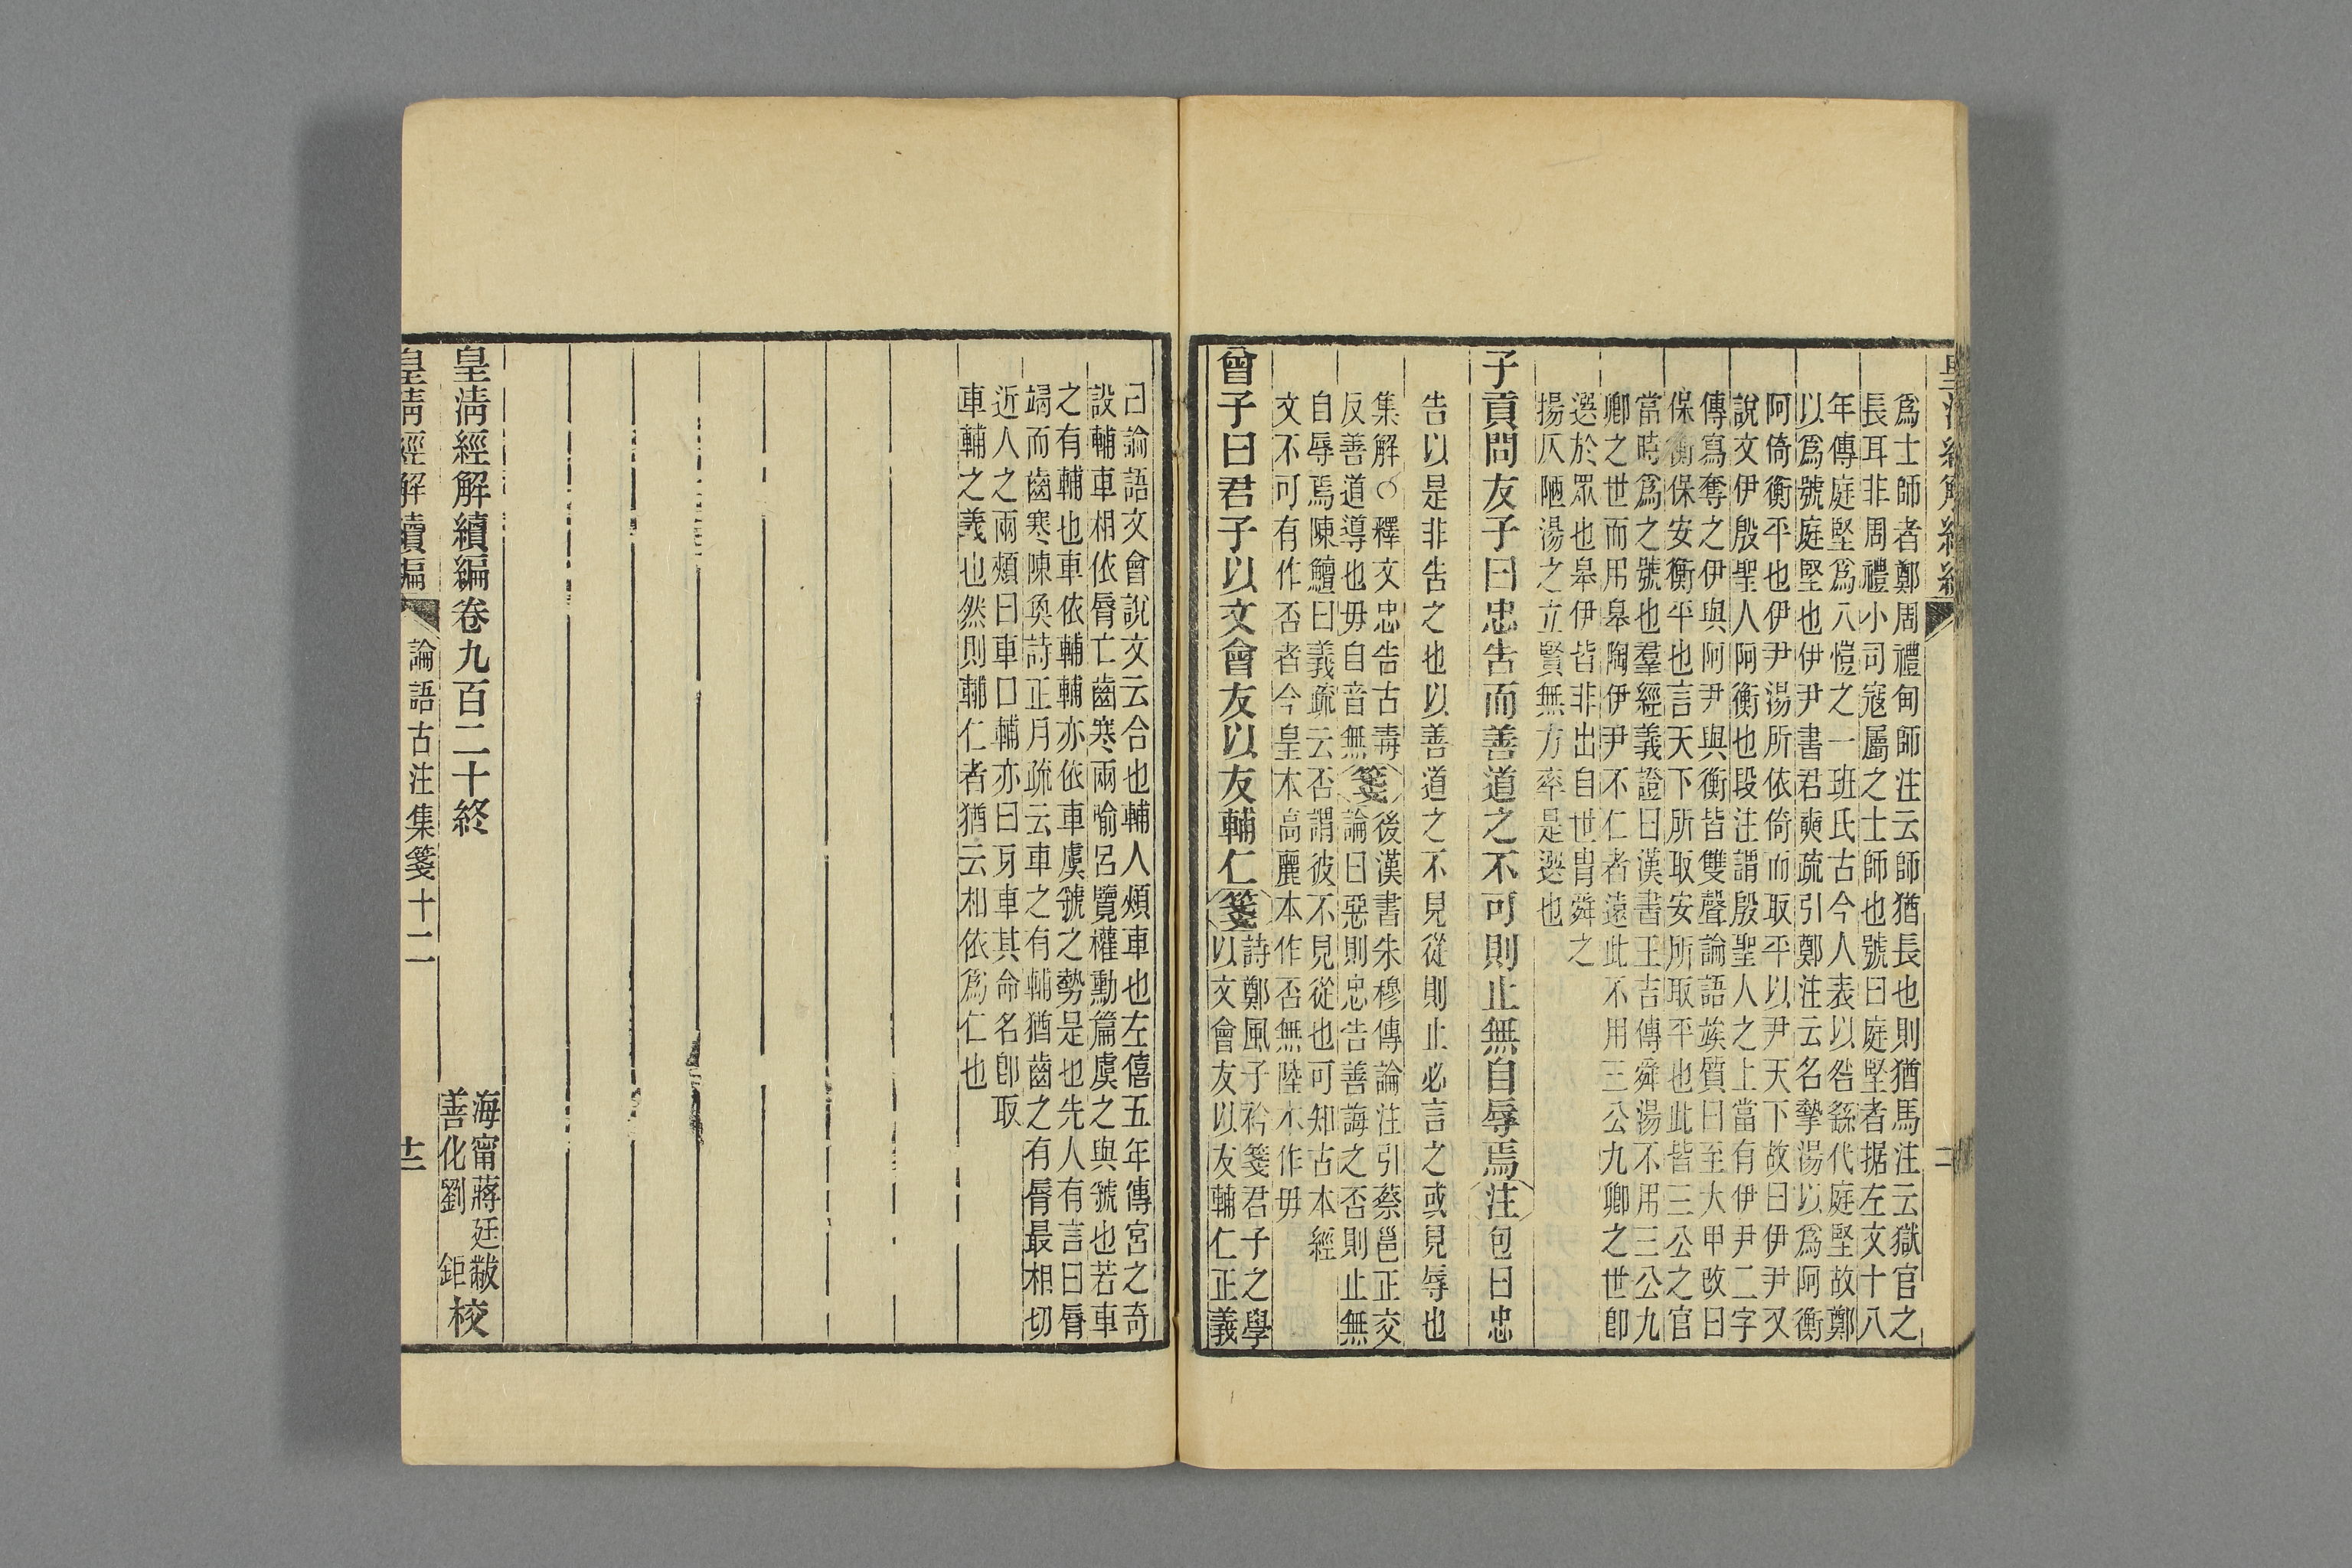 爲士師者鄭周禮甸師注云師猶長也則猶馬注云獄官之
長耳非周禮小司寇屬之士師也號曰庭堅者据左文十八
年傳庭堅爲八愷之一班氏古今人表以咎繇代庭堅故鄭
以爲號庭堅也伊尹書君奭疏引鄭注云名摯湯以爲阿衡
阿倚衡平也伊尹湯所依倚而取平以尹天下故曰伊尹又
說文伊殷聖人阿衡也段注謂殷聖人之上當有伊尹二字
傳寫奪之伊與阿尹與衡皆雙聲論語竢質曰至大甲改曰
保衡保安衡平也言天下所取安所取平也此皆三公之官
當時爲之號也羣經義證曰漢書王吉傳舜湯不用三公九
卿之世而用皋陶伊尹不仁者遠此不用三公九卿之世卽
選於眾也皋伊皆非出自世胄舜之
揚仄陋湯之立賢無方率是選也
子貢問友子曰忠告而善道之不可則止無自辱焉注包曰忠
告以是非告之也以善道之不見從則止必言之或見辱也
集解○釋文忠告古毒
反善道導也毋自音無箋後漢書朱穆傳論注引蔡邕正交
論曰惡則忠告善誨之否則止無
自辱焉陳鱣曰義疏云否謂彼不見從也可知古本經
文不可有作否者今皇本高麗本作否無陸本作毋
曾子曰君子以文會友以友輔仁箋詩鄭風子衿箋君子之學
以文會友以友輔仁正義
皇淸經解續編卷九百二十終
己論語文會說文云合也輔人頰車也左僖五年傳宮之奇
設輔車相依脣亡齒寒兩喻呂覽權勳篇虞之與虢也若車
之有輔也車依輔輔亦依車虞虢之勢是也先人有言曰脣
竭而齒寒陳奐詩正月疏云車之有輔猶齒之有脣最相切
近人之兩頰曰車口輔亦曰牙車其命名卽取
車輔之義也然則輔仁者猶云相依爲仁也
海甯蔣廷黻
善化劉 鉅校
皇淸經解續編 論語古注集箋十二 十二